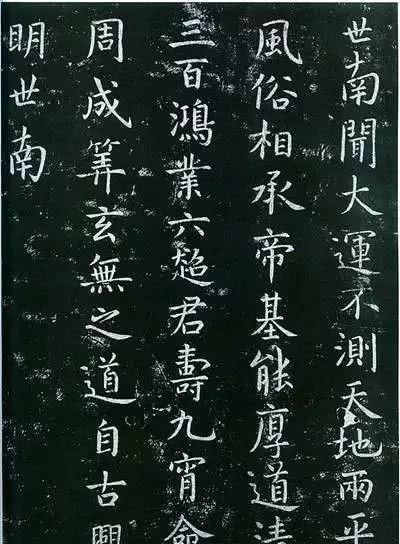 世南聞大運不測天地兩平
風俗相承帝基能厚道清
三百鴻業六超君壽九宵命
周成筭玄無之道自古興
明世南